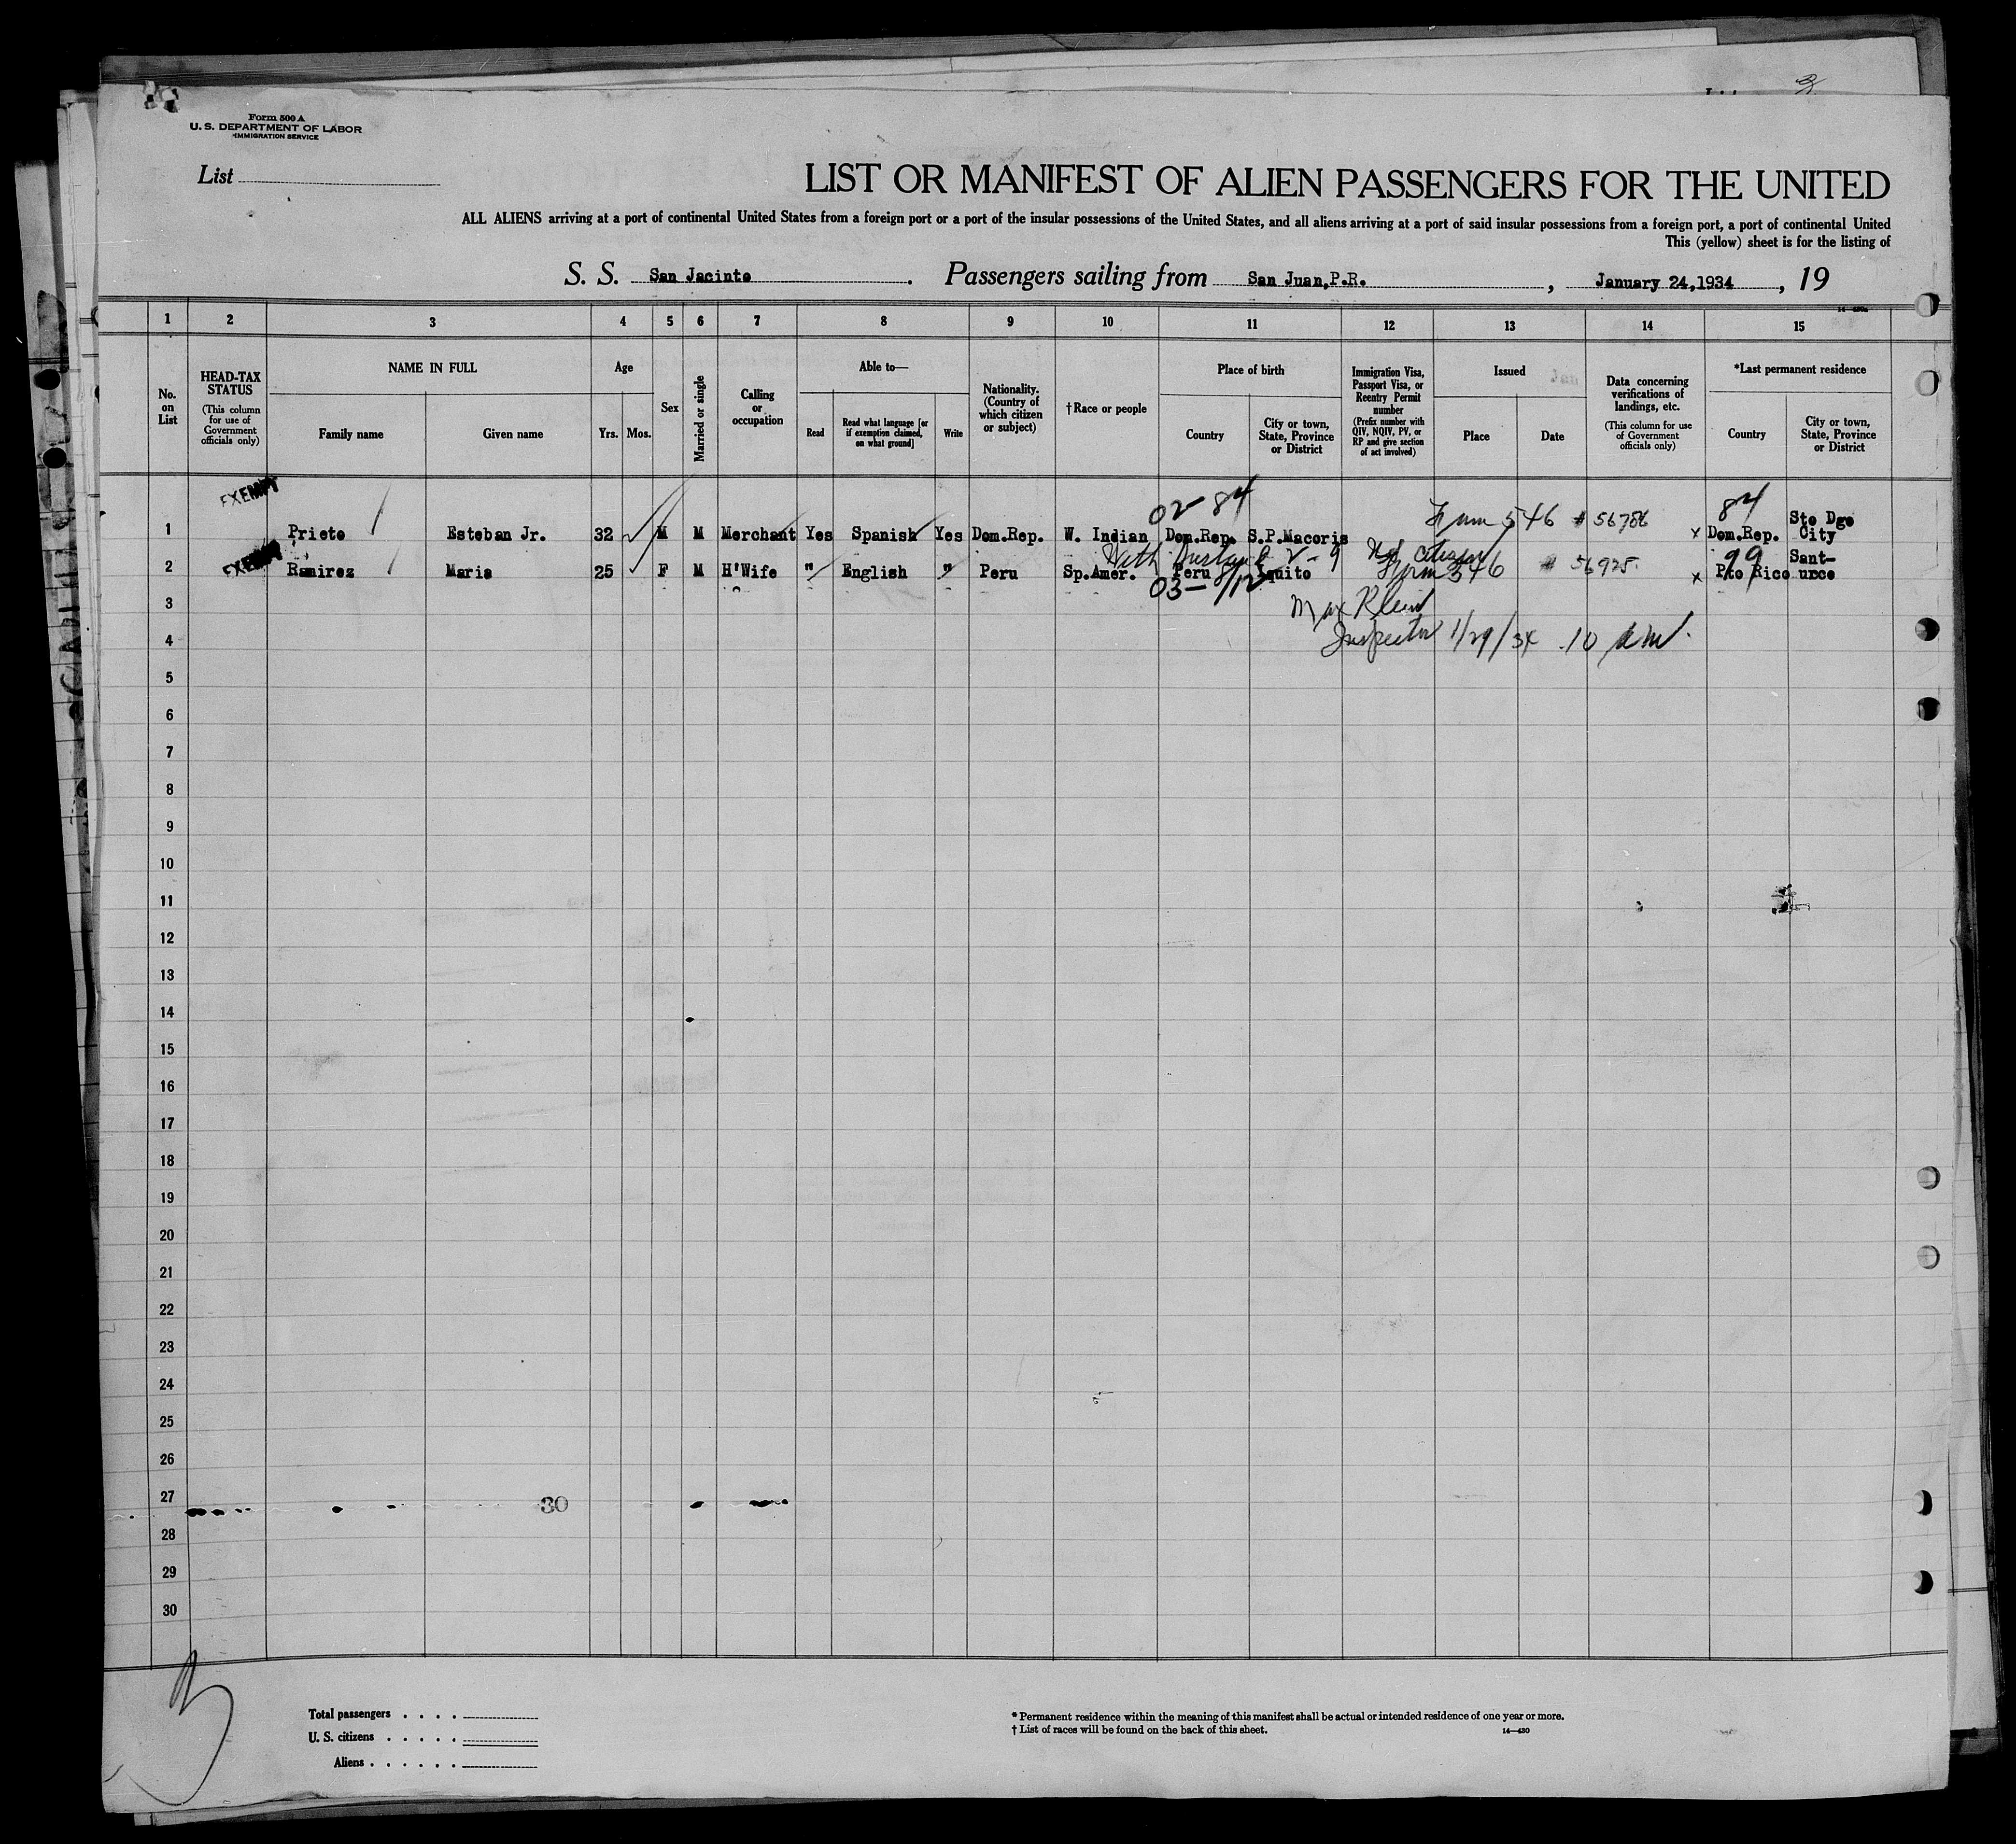 3
Form 500 A
U. S. DEPARTMENT OF LABOR
IMMIGRATION SERVICE
List
LIST OR MANIFEST OF ALIEN PASSENGERS FOR THE UNITED
ALL ALIENS arriving at a port of continental United States from a foreign port or a port of the insular possessions of the United States, and all aliens arriving at a port of said insular possessions from a foreign port, a port of continental United
This (yellow) sheet is for the listing of
S. S. San Jacinto. Passengers sailing from San Juan,P.R., January 24,1934, 19
1 2 3 4 5 6 7 8 9 10 11 12 13 14 15
No. on List
HEAD-TAX STATUS
(This column for use of Government officials only)
NAME IN FULL
Family name
Given name
Age
Yrs. Mos.
Sex
Married or single
Calling or occupation
Able to—
Read
Read what language [or if exemption claimed, on what ground]
Write
Nationality. (Country of which citizen or subject)
†Race or people
Place of birth
Country
City or town, State, Province or District
Immigration Visa, Passport Visa, or Reentry Permit number
(Prefix number with QIV, NQIV, PV, or RP and give section of act involved)
Issued
Place
Date
Data concerning verifications of landings, etc.
(This column for use of Government officials only)
*Last permanent residence
Country
City or town, State, Province or District
EXEMPT
02- 84
546 # 56786
84
1 Prieto Esteban Jr. 32 M M Merchant Yes Spanish Yes Dom.Rep. W. Indian Dom.Rep. S.P.Macoris x Dom.Rep. Sto Dgo City
EXEMPT
With
99
2 Ramirez Maria 25 F M H'Wife " English " Peru Sp.Amer. Peru Iquito 546 # 56925 x Pto Rico Sant-urce
03-
3
Max Klein
4
Inspector 1/29/34 10 AM.
5
6
7
8
9
10
11
12
13
14
15
16
17
18
19
20
21
22
23
24
25
26
27
30
28
29
30
Total passengers . . . .
U. S. citizens . . . . .
Aliens . . . . . .
* Permanent residence within the meaning of this manifest shall be actual or intended residence of one year or more.
† List of races will be found on the back of this sheet.
14—430